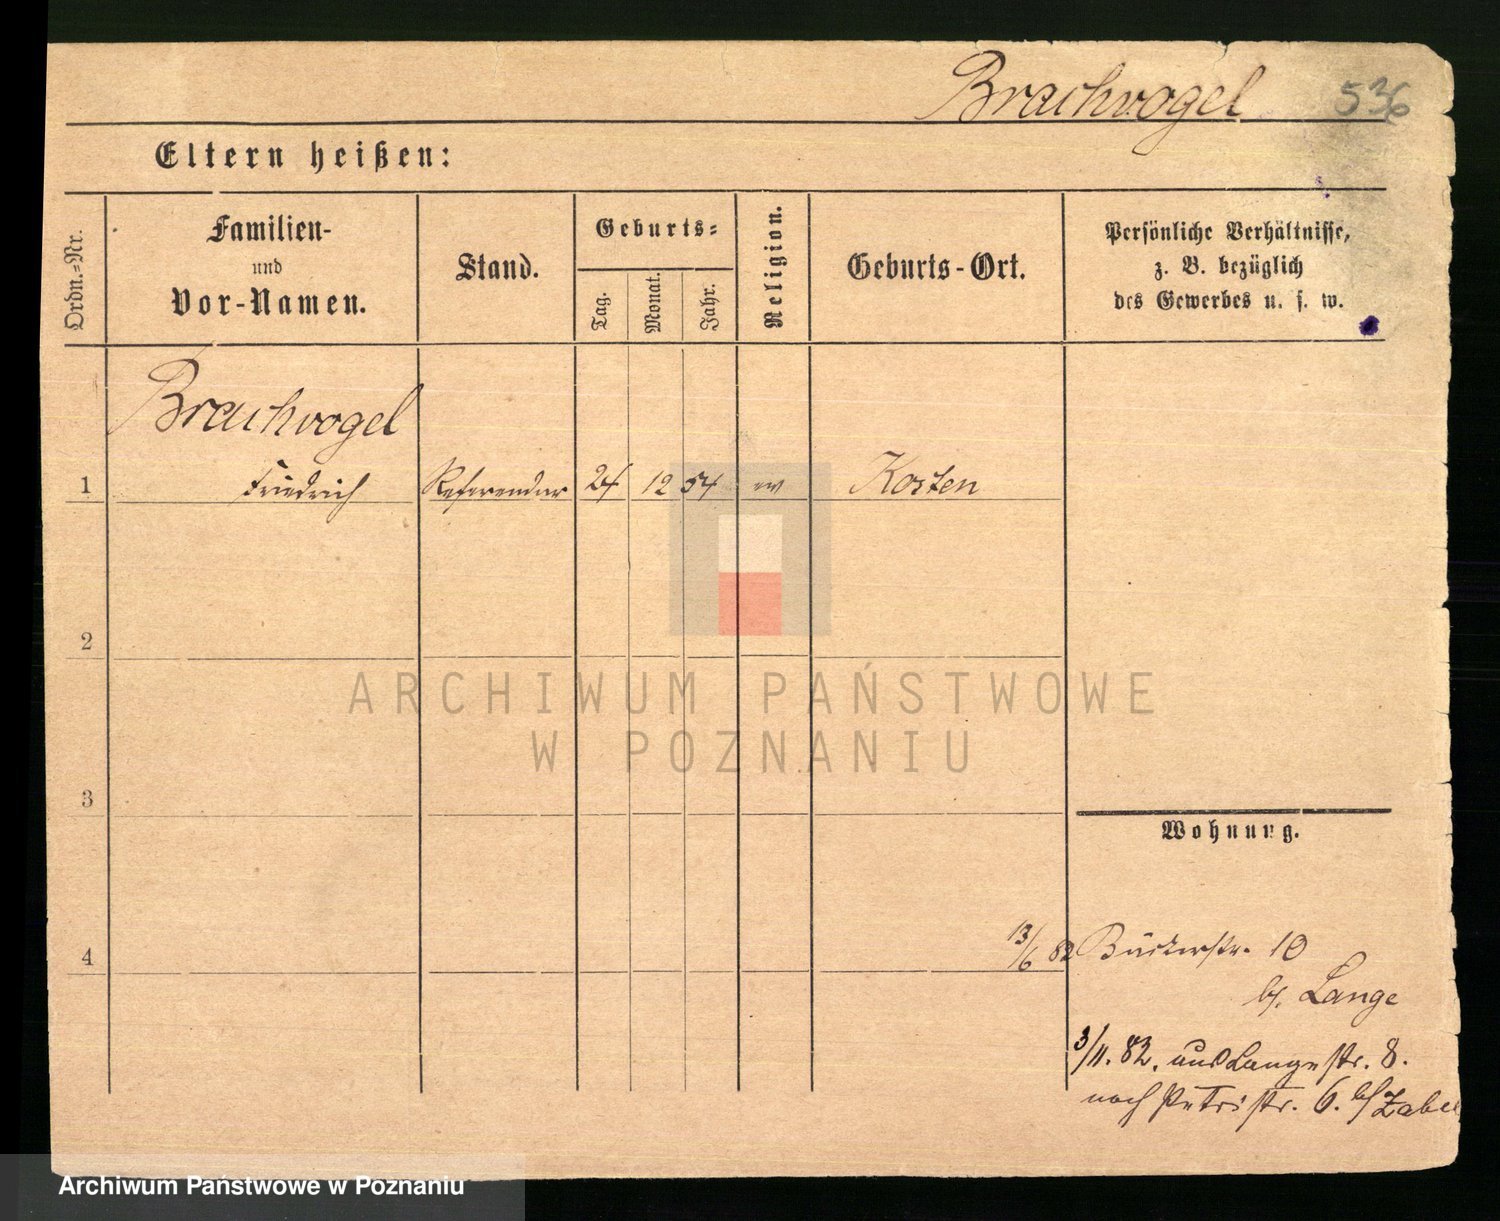 Brachvogel 536
Eltern heißen:
Ordn.=Nr.
Familien-
und
Vor-Namen.
Stand.
Geburts=
Tag.
Monat.
Jahr.
Religion.
Geburts-Ort.
Persönliche Verhältnisse,
z. B. bezüglich
des Gewerbes u. s. w.
Brachvogel
1 Friedrich Referendar 24 12 54 ev Kosten
2
ARCHIWUM PAŃSTWOWE
W POZNANIU
3
Wohnung.
4
13/6 82 Bäckerstr. 10
b/. Lange
3/11. 82. aus Langestr. 8.
nach Petristr. 6. b/ Zabel
Archiwum Państwowe w Poznaniu